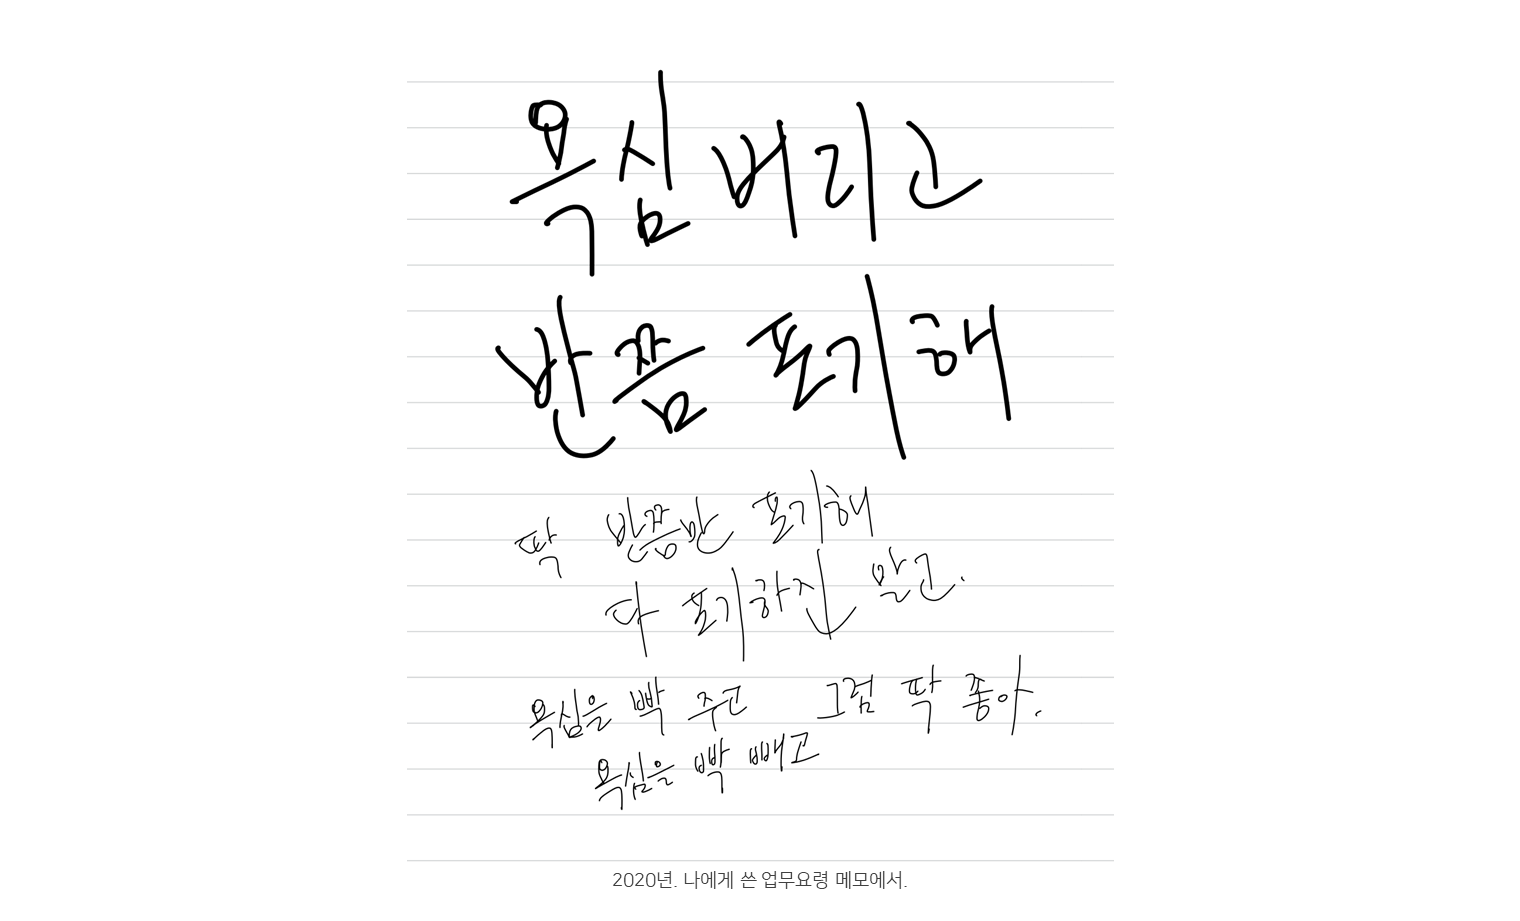 욕심 버리고
반쯤 포기해
딱 반쯤만 포기해
다 포기하진 말고.
욕심을 빡 주고 그럼 딱 좋아.
욕심을 빡 빼고
2020년. 나에게 쓴 업무요령 메모에서.